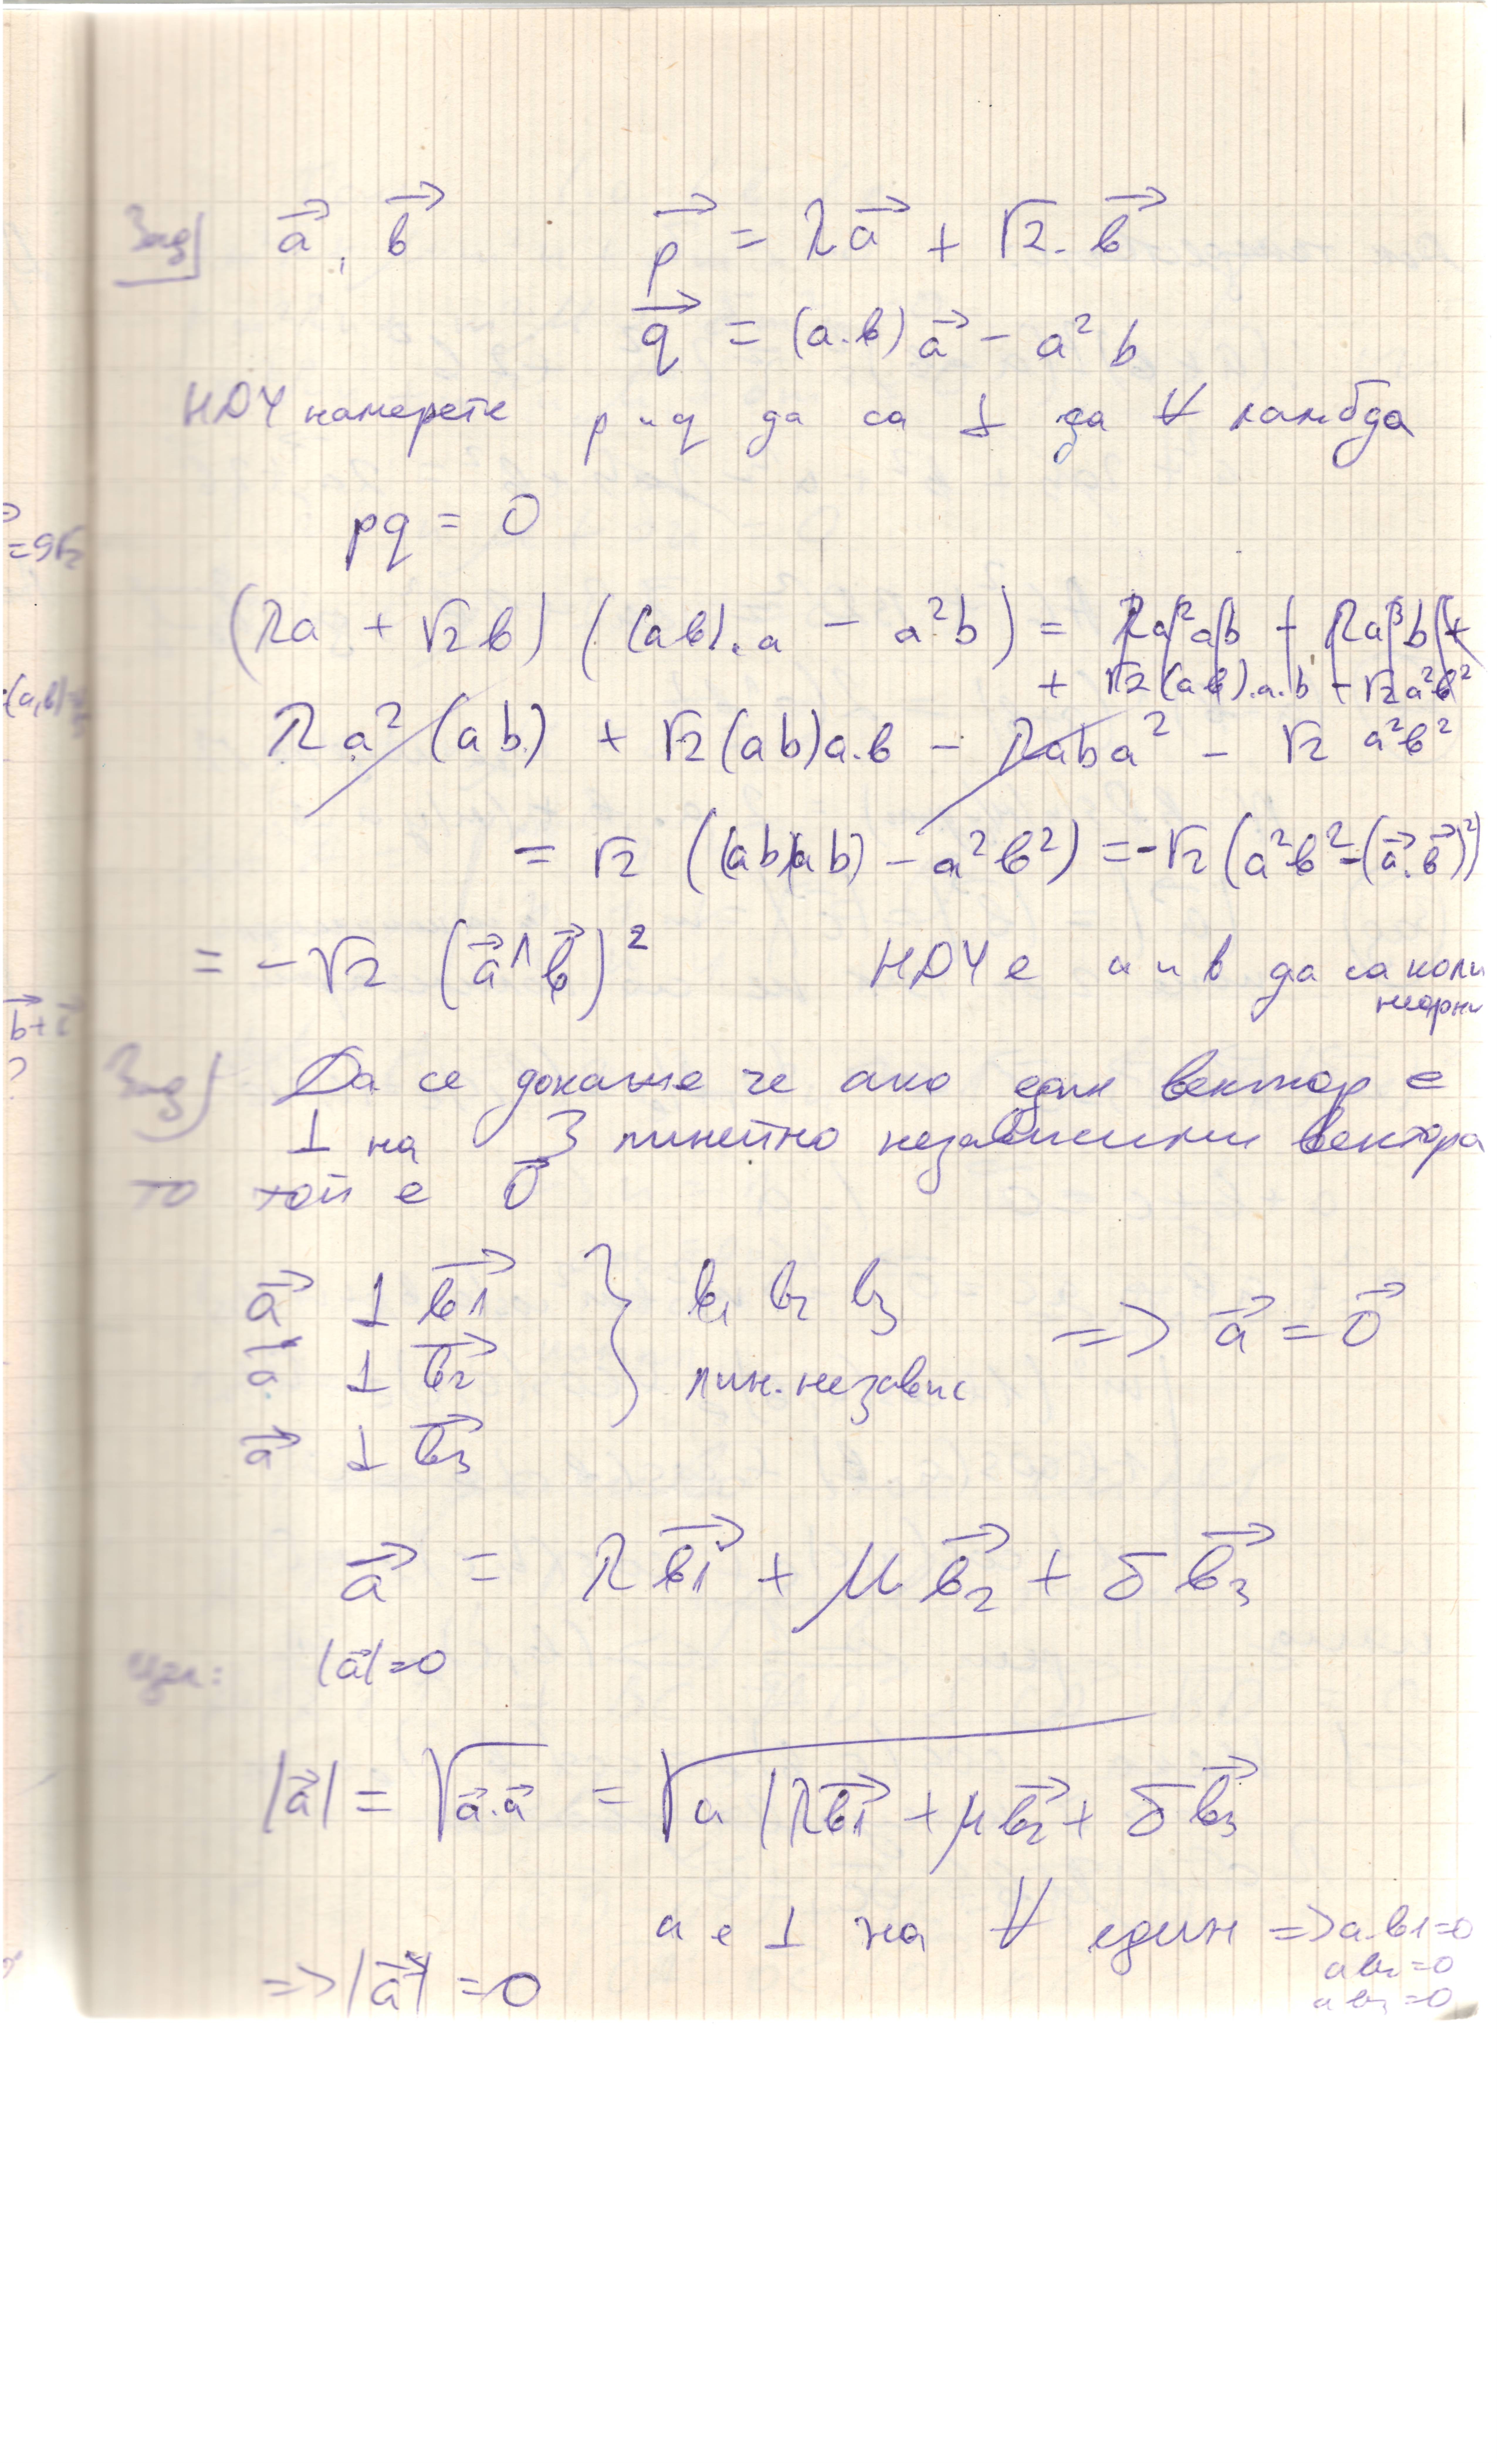 Зад a⃗, b⃗ p⃗ = λa⃗ + √2. b⃗
q⃗ = (a.b)a⃗ - a² b
НДУ намерете p и q да са ⊥ за ∀ ламбда
pq = 0
(λa + √2b) ((ab).a - a²b) =
+ √2(ab).a.b - √2a²b²
λa²(ab) + √2(ab)a.b - λaba² - √2 a²b²
= √2 ((ab)(ab) - a²b²) = -√2(a²b² - (a⃗.b⃗)²)
= -√2 (a⃗∧b⃗)² НДУ е a и b да са коли
неарни
Зад Да се докаже че ако един вектор е
⊥ на 3 линейно независими вектора
то той е 0⃗
a⃗ ⊥ b1⃗ } b1 b2 b3 => a⃗ = 0⃗
a⃗ ⊥ b2⃗ лин. независ
a⃗ ⊥ b3⃗
a⃗ = λb1⃗ + μb2⃗ + δb3⃗
цел: |a⃗|=0
|a⃗| = √a⃗.a⃗ = √a(λb1⃗ + μb2⃗ + δb3⃗
a е ⊥ на ∀ един => a.b1=0
ab2=0
ab3=0
=> |a⃗| = 0